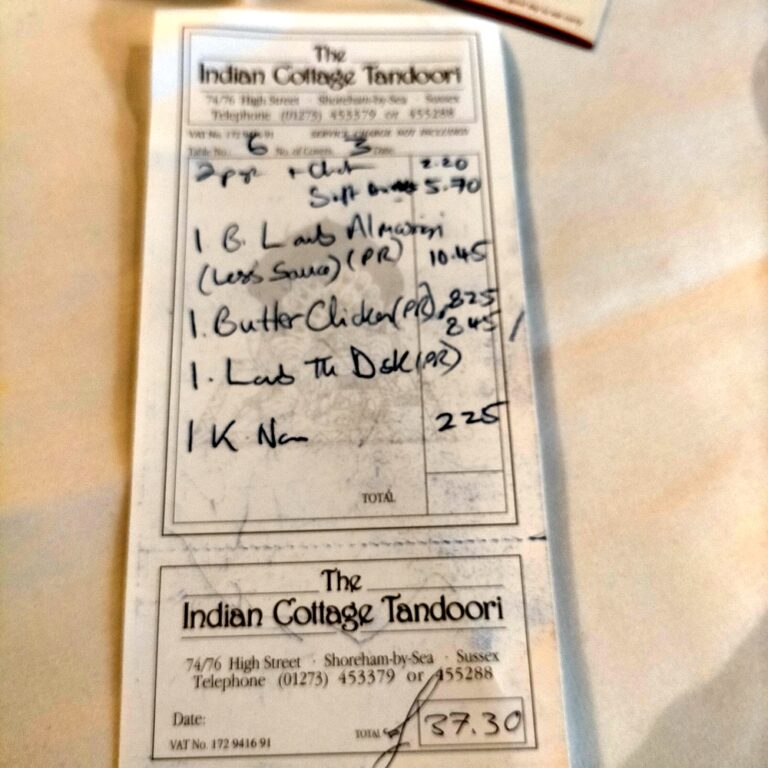 The
Indian Cottage Tandoori
74/76 High Street · Shoreham-by-Sea · Sussex
Telephone (01273) 453379 or 455288
VAT No. 172 9416 91 SERVICE CHARGE NOT INCLUDED
Table No. 6 No. of Covers 3 Date
2 + 2.20
Soft 5.70
1 B. Lamb
(Less Sauce) (PR) 10.45
1. Butter Chicken (PR) 825
845 /
1. Lamb Th Dsk (PR)
1 K. Nan 225
TOTAL
The
Indian Cottage Tandoori
74/76 High Street · Shoreham-by-Sea · Sussex
Telephone (01273) 453379 or 455288
Date:
VAT No. 172 9416 91 TOTAL £ 37.30